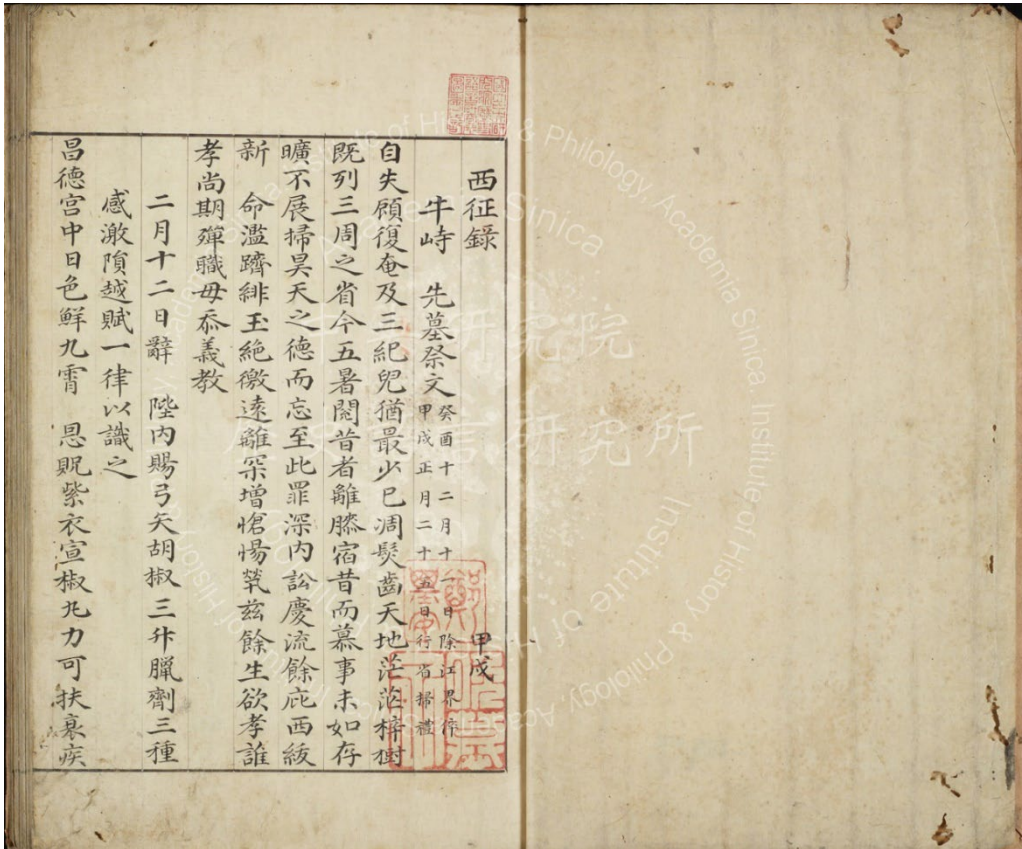 西征錄 甲戌
牛峙 先墓祭文 癸酉十二月十一日除江界倅 甲戌正月二十五日行省掃禮
自失顧復奄及三紀兒猶最少已凋髮齒天地茫茫梓樹
旣列三周之省今五暑閱昔者離膝宿昔而慕事未如存
曠不展掃昊天之德而忘至此罪深內訟慶流餘庇西紱
新 命濫躋緋玉絕徼遠離冞增愴惕煢玆餘生欲孝誰
孝尚期殫職毋忝義敎
二月十二日辭 陛內賜弓矢胡椒三升臘劑三種
感激隕越賦一律以識之
昌德宮中日色鮮九霄 恩貺紫衣宣椒丸力可扶衰疾
中央研究院
歷史語言研究所
Institute of History & Philology, Academia Sinica